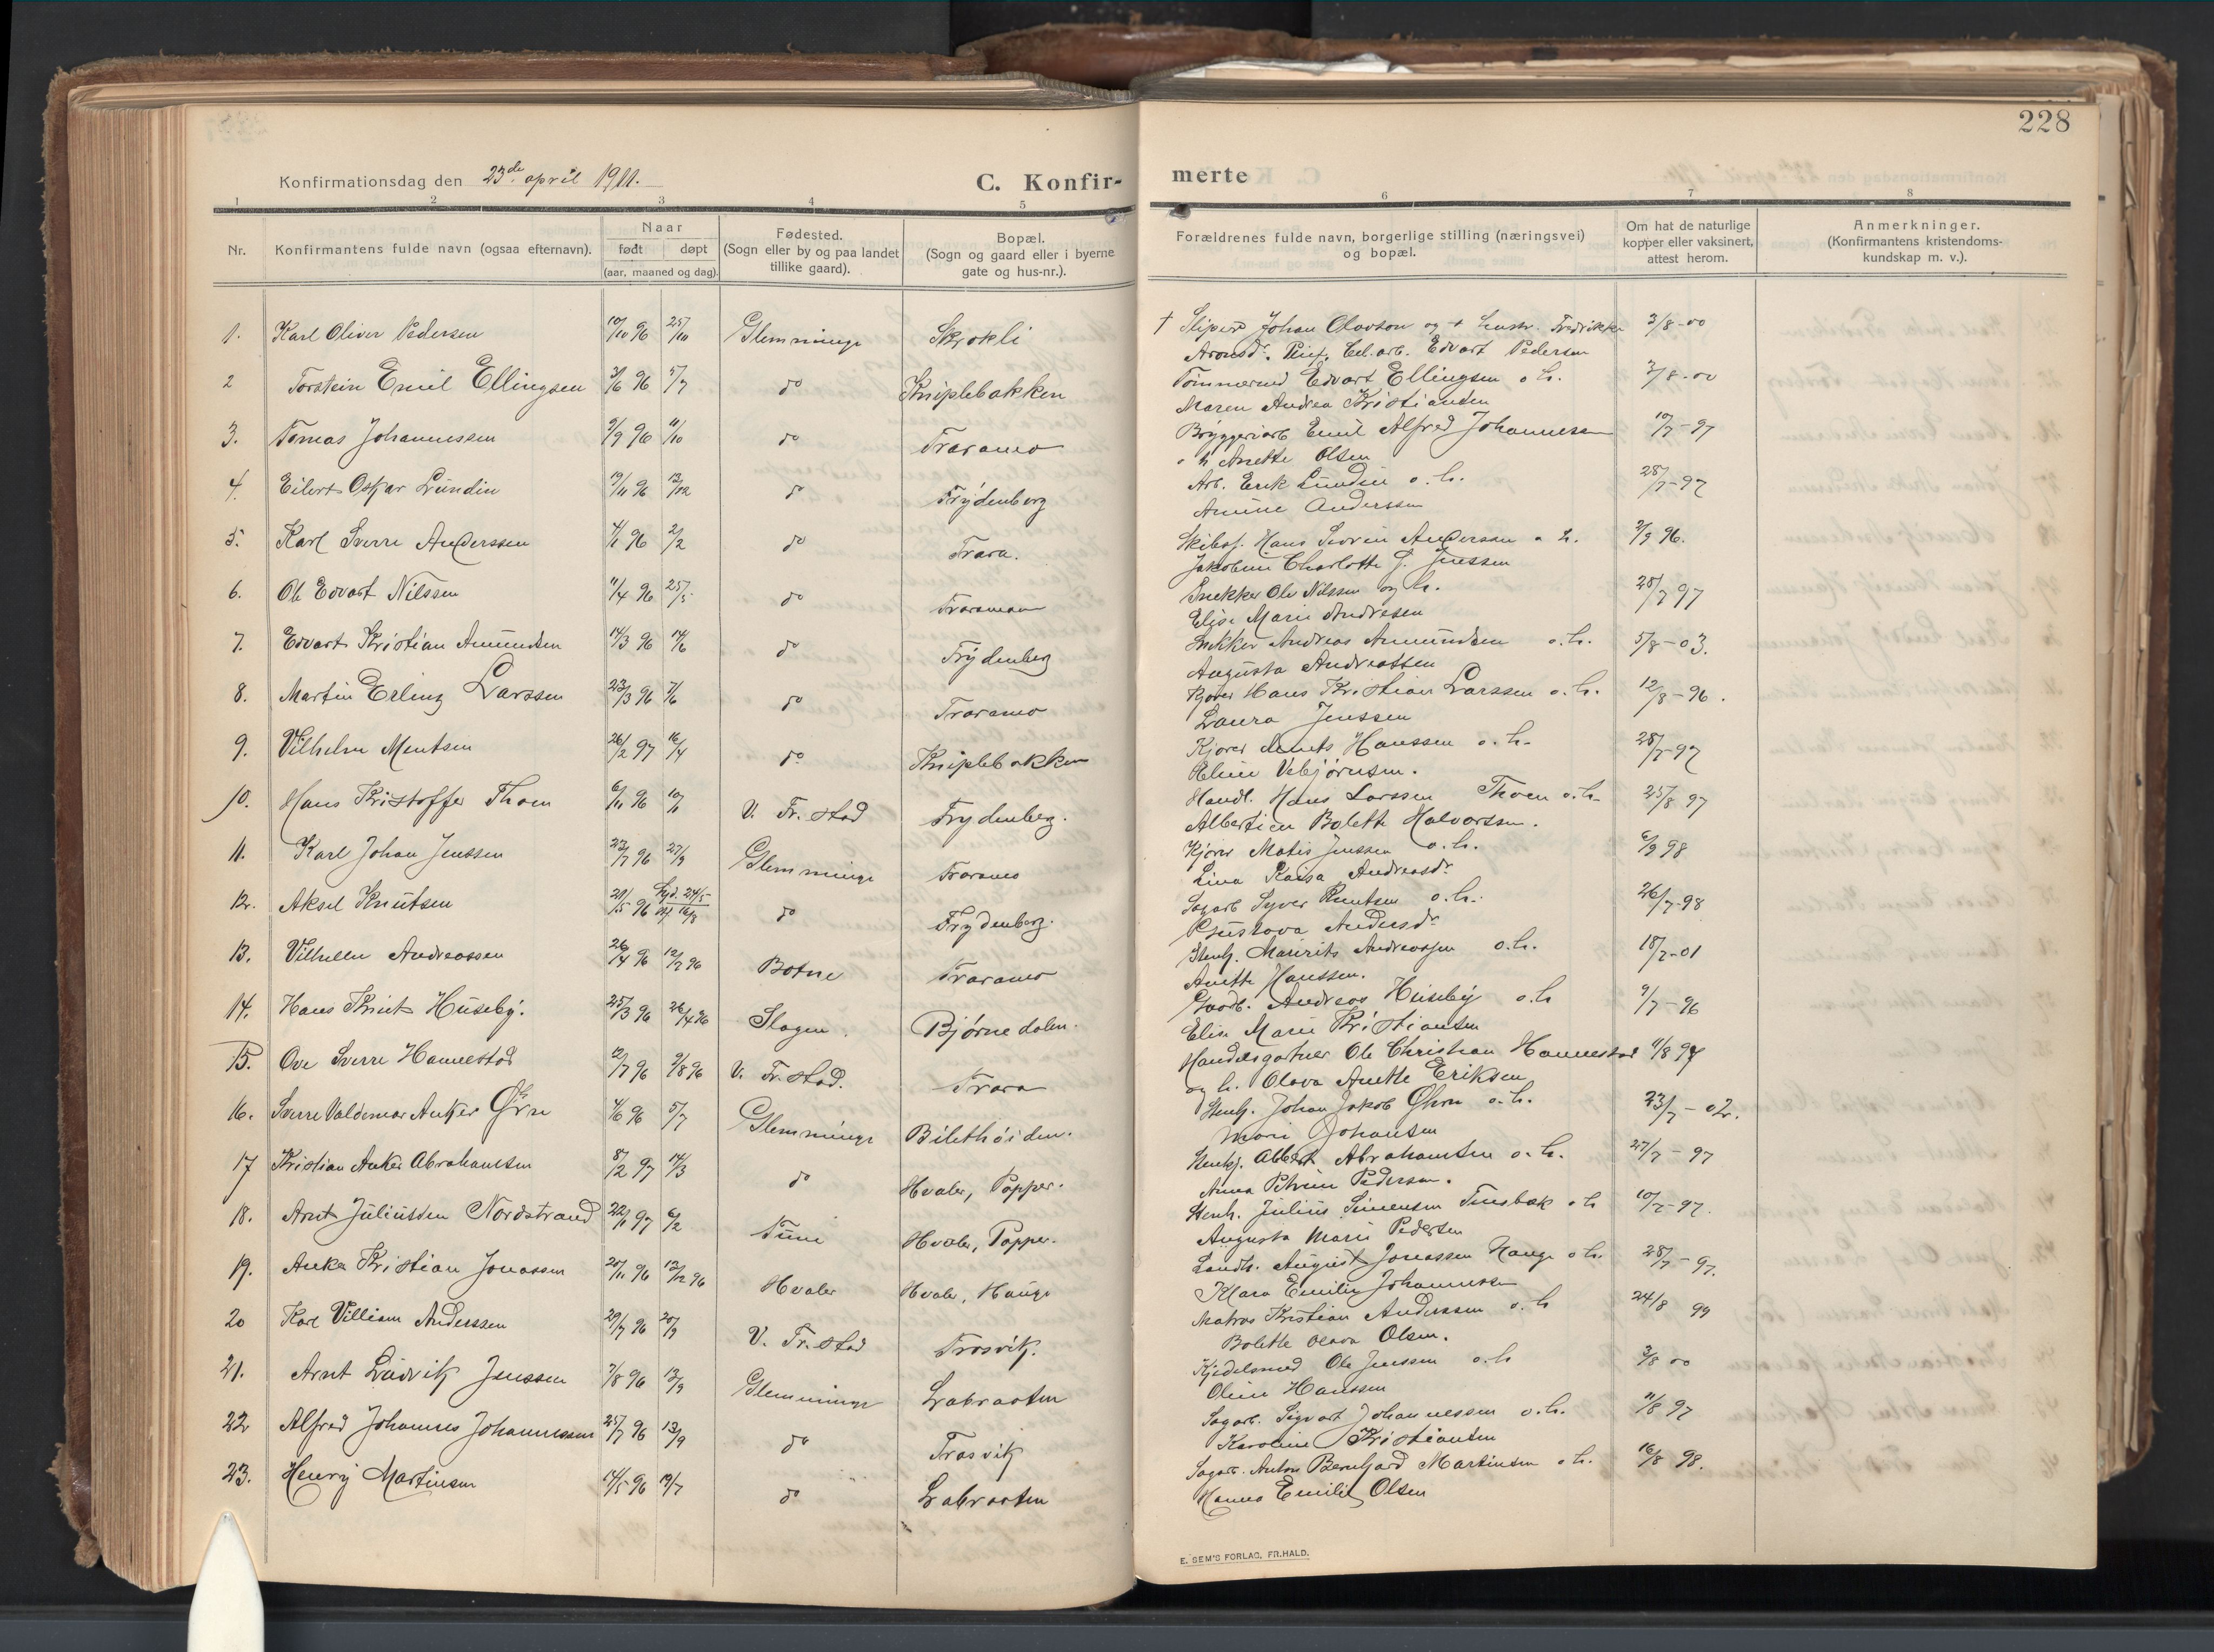 228
Konfirmationsdag den 23de april 1911.
C. Konfir-
merte
1 2 3 4 5 6 7 8
Nr.
Konfirmantens fulde navn (ogsaa efternavn).
Naar
født døpt
(aar, maaned og dag).
Fødested.
(Sogn eller by og paa landet
tillike gaard).
Bopæl.
(Sogn og gaard eller i byerne
gate og hus-nr.).
Forældrenes fulde navn, borgerlige stilling (næringsvei)
og bopæl.
Om hat de naturlige
kopper eller vaksinert,
attest herom.
Anmerkninger.
(Konfirmantens kristendoms-
kundskap m. v.).
1. Karl Oliver Pedersen 10/10 96 25/10 Glemminge Skrokli † Sliper Johan Olavson og + hustr. Fredrikke 3/8-00
Aronsdr. Edvart Pedersen
2 Torstein Emil Ellingsen 3/6 96 5/7 do Kniplebakken Tømmermd Edvart Ellingsen o. h. 3/8-00
Maren Andrea Kristiansen
3. Tomas Johannessen 9/9 96 11/10 do Traramo Bryggeriarb Emil Alfred Johannesen 10/7-97
o h Anette Olsen
4. Eilert Oskar Lundin 19/11 96 13/12 do Frydenberg Arb. Erik Lundin o. h. 28/7-97
Amine Anderssen
5. Karl Sverre Anderssen 4/1 96 2/2 do Trara. Hans Severin Anderssen o h. 2/9 96.
Jakobine Charlotte J. Jenssen
6. Ole Edvart Nilssen 11/4 96 25/5 do Snekker Ole Nilssen og h. 28/7 97
Elise Marie Andresen
7. Edvart Kristian Amundsen 14/3 96 14/6 do Frydenberg Snekker Andreas Amundsen o. h. 5/8-03.
Augusta Andreassen
8. Martin Erling Larssen 23/3 96 7/6 do Traramo Hans Kristian Larssen o. h. 12/8-96.
Laura Jenssen
9. Vilhelm Mentsen 26/2 97 16/4 do Kniplebakken Kjører Ments Hanssen o. h. 28/7-97
Vebjørnsen.
10. Hans Kristoffer Thoen 6/11 96 V. Fr.stad Frydenberg. Handl. Hans Larssen Thoen o. h. 25/8 97
Bolette Halvorsen.
11. Karl Johan Jenssen 23/7 96 27/9 Glemminge Traramo Kjører Matis Jenssen o. h. 6/9 98
Lina Kaisa Andreasdr
12. Aksel Knutsen 21/5 96 Hjd. 24/5 do Frydenberg. Sagarb Syver Knutsen o. h. 26/7-98
16/8
Gustava Andersdr
13. Vilhelm Andreassen 26/4 96 12/7 96 Botne Traramo Stenh. Maurits Andreassen o. h. 18/7-01
Anette Hanssen.
14. Hans Knut Huseby. 25/3 96 26/4 96 Slagen. Bjørnedalen. Gaardb. Andreas Huseby o. h 9/7-96
Elise Marie Kristiansen
15. Ove Sverre Hannestad 12/7 96 9/8 96 V. Fr.stad. Trara Handelsgartner Ole Christian Hannestad 11/8 97
og h. Olava Anette Eriksen
16. Sverre Valdemar Anker Ørn 4/6 96 5/7 Glemminge Bilethøiden. Stenh. Johan Jakob Øhrn o. h. 23/7-02.
Mari Johansen
17 Kristian Anker Abrahamsen 8/2 97 14/3 do Hvaler, Papper. Stenhj. Albert Abrahamsen o. h. 27/7-97
Anna Petrine Pedersen.
18. Arnt Juliussen Nordstrand 22/1 97 6/2 Tune Hvaler, Papper. Stenh. Julius Simensen o h 10/7-97.
Augusta Marie Pedersen
19. Anker Kristian Jonassen 20/11 96 13/12 96 Hvaler Hvaler, Hauge August Jonassen Hauge o h. 28/7-97.
Klara Emilie Johannessen
20 Karl Villiam Anderssen 29/7 96 20/9 V. Fr.stad Trosvik. Matros Kristian Anderssen o. h 24/8 99
Bolette Olava Olsen.
21. Arnt Ludvik Jenssen 7/8 96 13/9 Glemminge Labraaten Kjedelsmed Ole Jenssen o. h 3/8 00
Oline Hanssen
22 Alfred Johannes Johannessen 25/7 96 13/9 do Trosvik Sagarb. Sigvart Johannessen o. h. 11/8 97
Karoline Kristiansen
23. Henry Martinsen 14/5 96 19/7 do Labraaten Sagarb. Anton Bernhard Martinsen o h. 16/8 98.
Hanna Emilie Olsen
E. SEM'S FORLAG, FR.HALD.